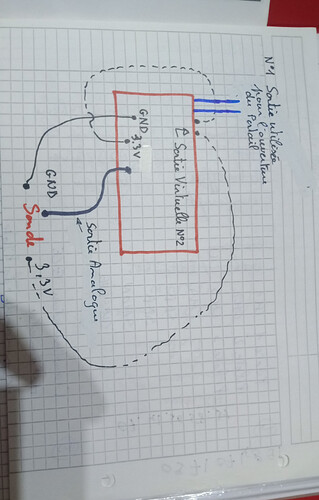 N°1 Sortie utilisée
pour l'ouverture
du Portail
Sortie Virtuelle N°2
GND
3,3V
Sortie Analogue
GND
Sonde
3,3V